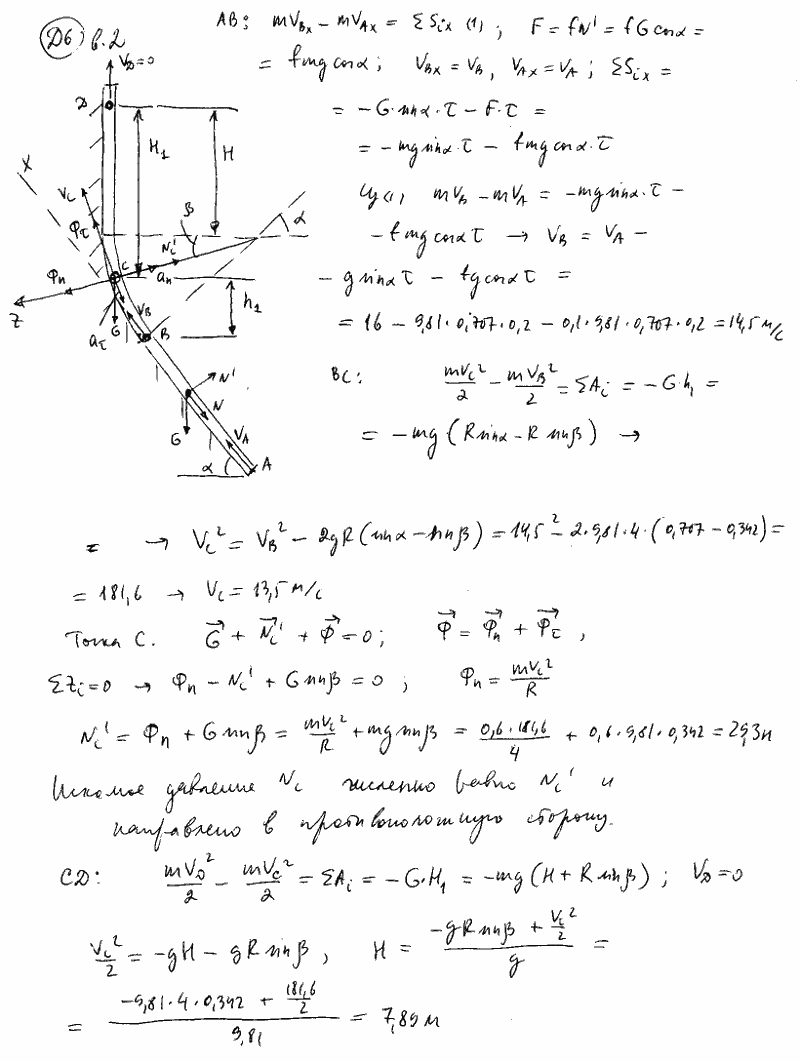 Д6 в.2
AB: mV_Bx − mV_Ax = ΣS_ix (1) ; F = fN' = fG cosα =
= fmg cosα ; V_Bx = V_B, V_Ax = V_A ; ΣS_ix =
= −G·sinα·τ − F·τ =
= −mg sinα·τ − fmg cosα·τ
Из (1) mV_B − mV_A = −mg sinα·τ −
− fmg cosα τ → V_B = V_A −
− g sinα τ − fg cosα τ =
= 16 − 9,81·0,707·0,2 − 0,1·9,81·0,707·0,2 = 14,5 м/с
BC: mV_C²/2 − mV_B²/2 = ΣA_i = −G·h₁ =
= −mg (R sinα − R sinβ) →
V_D=0
D
H₁
H
X
V_C
Φ_τ
β
α
N_C'
C
a_n
Φ_n
Z
G
V_B
B
h₁
a_τ
N'
N
G
V_A
α
A
= → V_C² = V_B² − 2gR(sinα − sinβ) = 14,5² − 2·9,81·4·(0,707 − 0,342) =
= 181,6 → V_C = 13,5 м/с
Точка C. G + N_C' + Φ = 0 ; Φ = Φ_n + Φ_τ ,
ΣZ_i = 0 → Φ_n − N_C' + G sinβ = 0 ; Φ_n = mV_C²/R
N_C' = Φ_n + G sinβ = mV_C²/R + mg sinβ = 0,6·181,6/4 + 0,6·9,81·0,342 = 29,3 н
Искомое давление N_C численно равно N_C' и
направлено в противоположную сторону.
CD: mV_D²/2 − mV_C²/2 = ΣA_i = −G·H₁ = −mg (H + R sinβ) ; V_D = 0
V_C²/2 = −gH − gR sinβ , H = (−gR sinβ + V_C²/2)/g =
= (−9,81·4·0,342 + 181,6/2)/9,81 = 7,89 м